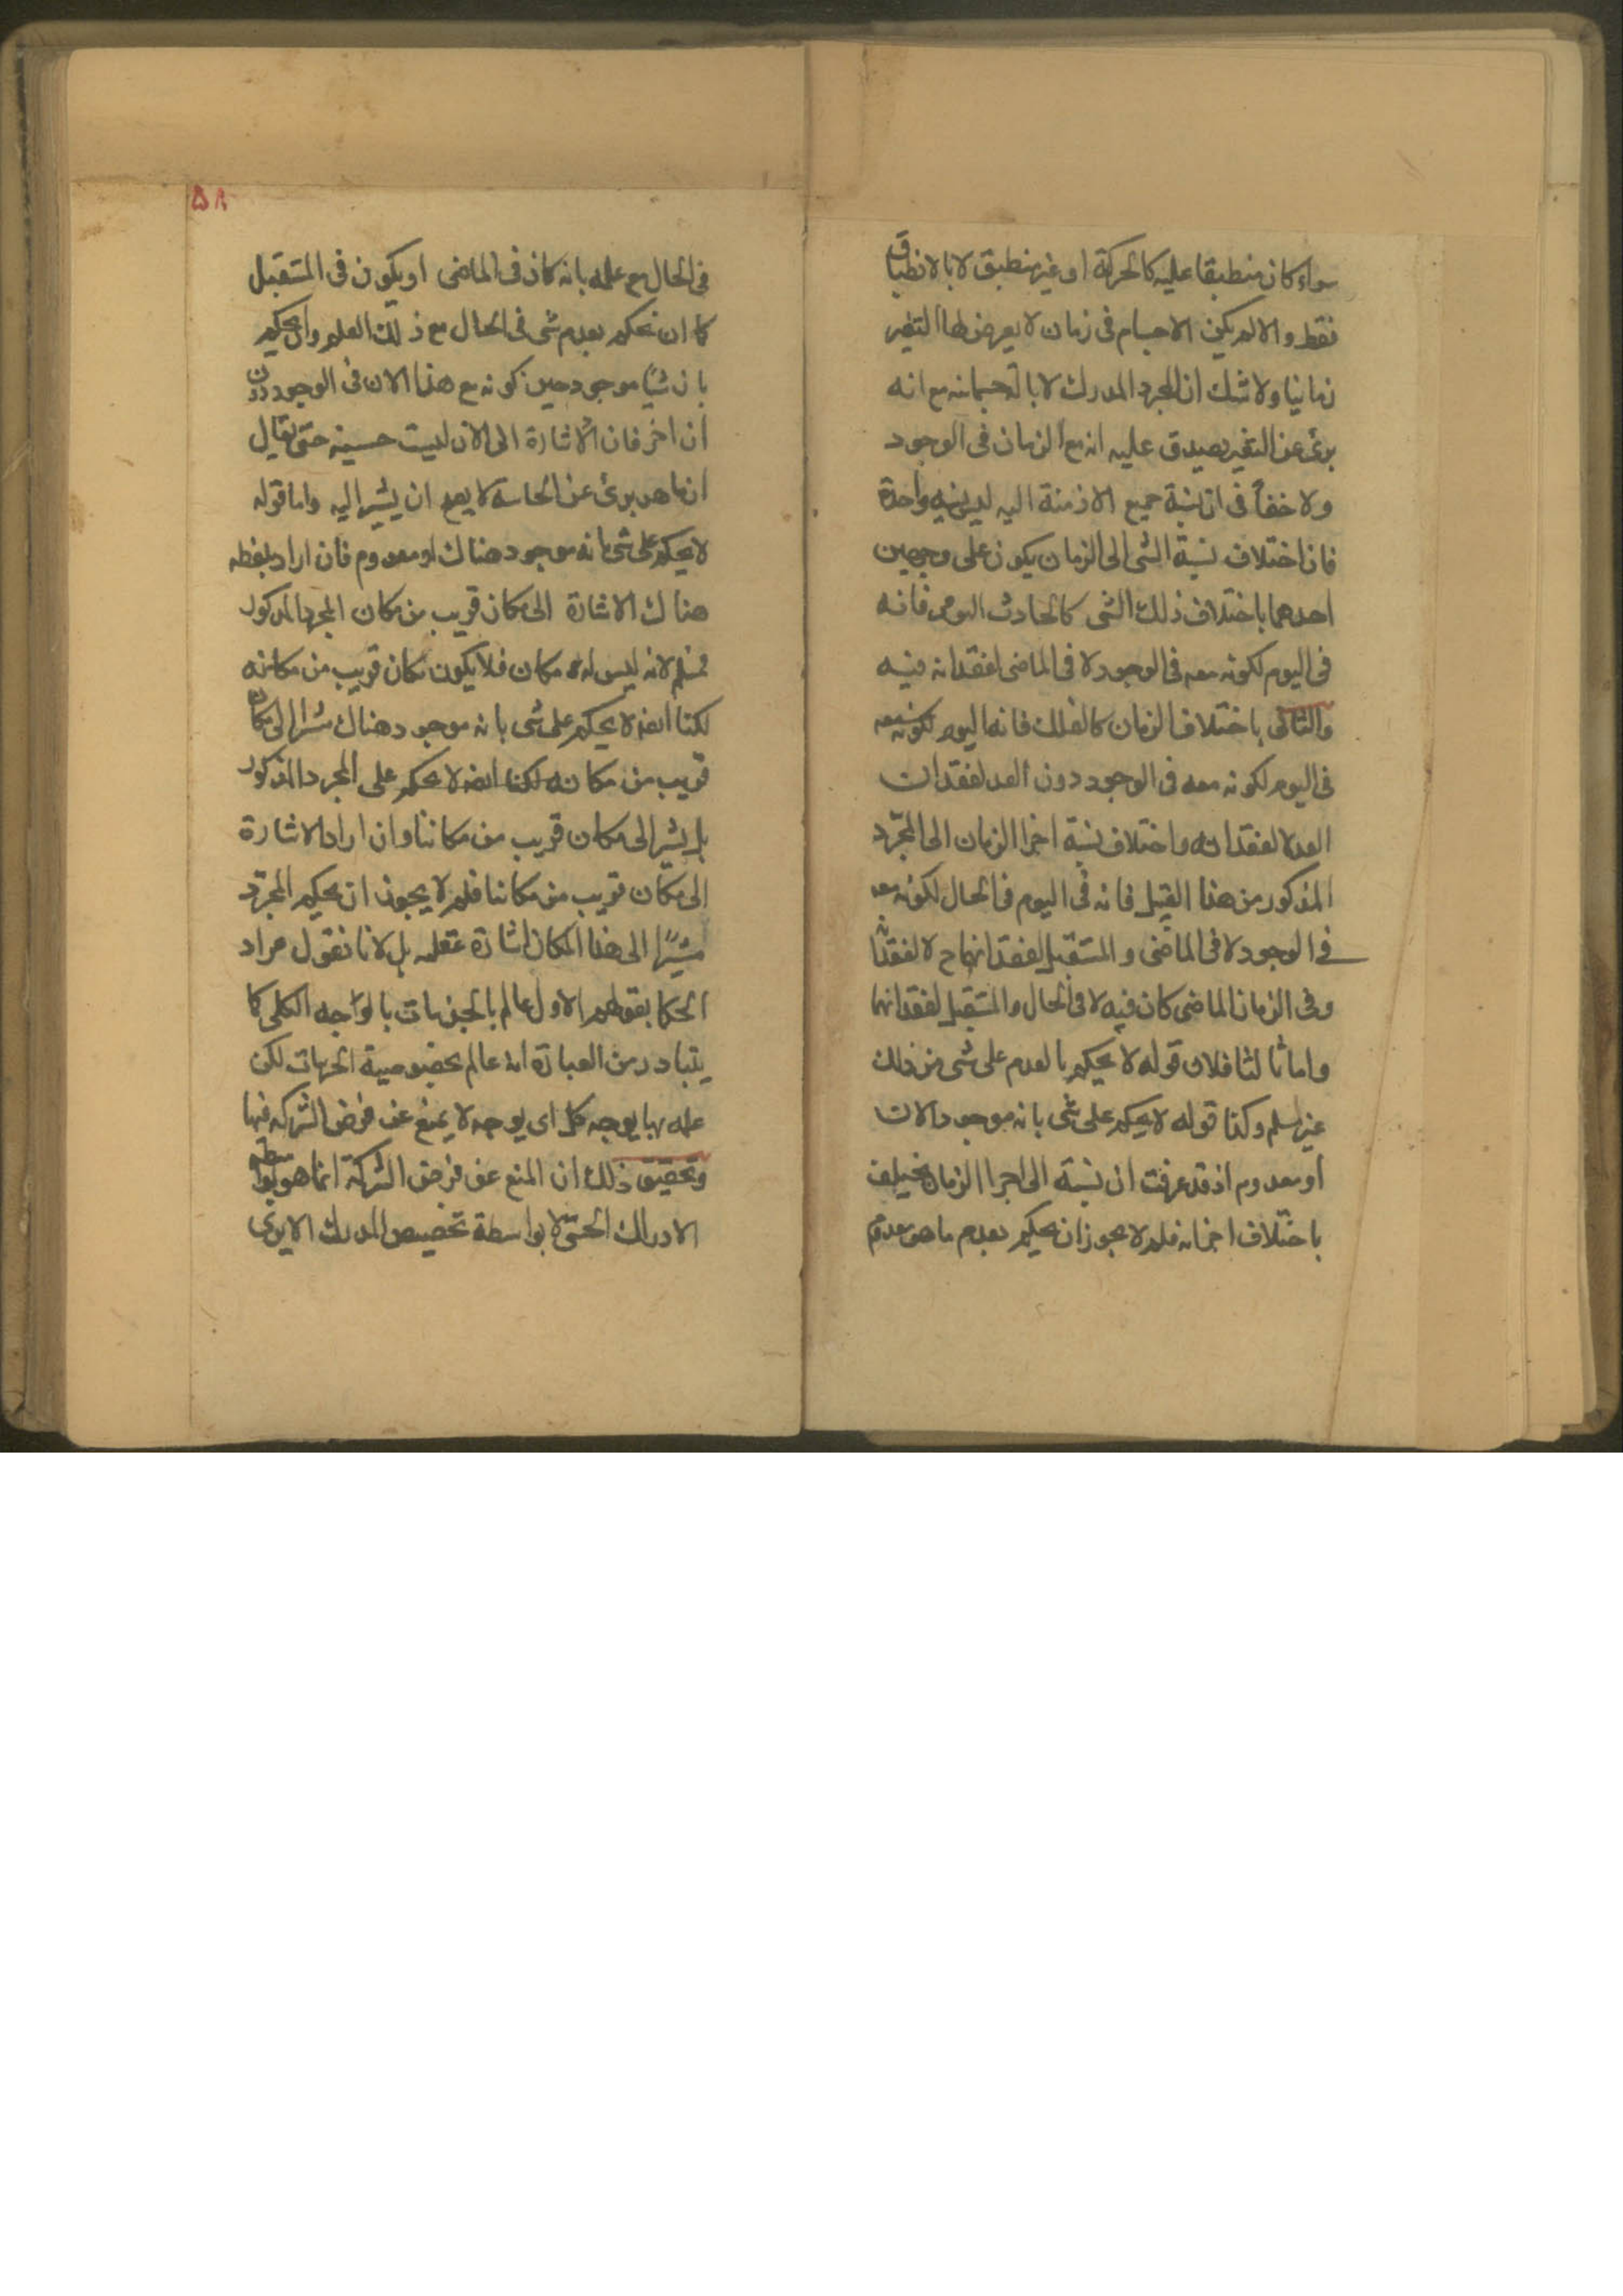 سواء كان منطبقا عليه كالحركة او غير منطبق لا بالانطباق
فقط والا لم يكن الاجسام فى زمان لا يعرض لها التغير
زمانيا ولا شك ان المجرد المدرك لا بالة جسمانية مع انه
برئ عن التغير يصدق عليه انه مع الزمان فى الوجود
ولا خفأ فى ان نسبة جميع الازمنة اليه ليس نسبة واحدة
فان اختلاف نسبة الشى الى الزمان يكون على وجهين
احدهما باختلاف ذلك الشى كالحادث اليومى فانه
فى اليوم لكونه معه فى الوجود لا فى الماضى لفقدانه فيه
والثانى باختلاف الزمان كالفلك فانه اليوم
فى اليوم لكونه معه فى الوجود دون الغد لفقدان
الغد لا لفقدانه واختلاف نسبة اجزا الزمان الى المجرّد
المذكور من هذا القبيل فانه فى اليوم فى الحال لكونه معه
فى الوجود لا فى الماضى والمستقبل لفقدانهما ح لا لفقدانه
وفى الزمان الماضى كان فيه لا فى الحال والمستقبل لفقدانهما
واما ثالثا فلان قوله لا يحكم بالعدم على شى من ذلك
غير مسلم وكذا قوله لا يحكم على شى بانه موجود الان
او معدوم اذ قد عرفت ان نسبة الى اجزا الزمان يختلف
باختلاف اجزائه فلم لا يجوز ان يحكم بعدم ما هو معدوم
۵۸
فى الحال مع علمه بانه كان فى الماضى او يكون فى المستقبل
كما ان نحكم بعدم شى فى الحال مع ذلك العلم وان يحكم
بان شيًا موجود حين كونه مع هذا الان فى الوجود دون
ان اخر فان الاشارة الى الان ليست حسية حتى يقال
ان ما هو برئ عن الحاسة لا يصح ان يشير اليه واما قوله
لا يحكم على شى بانه موجود هناك او معدوم فان اراد بلفظه
هناك الاشارة الى مكان قريب من مكان المجرد المذكور
فمسلم لانه ليس له مكان فلا يكون مكان قريب من مكانه
لكنا ايضا لا يحكم على شى بانه موجود هناك مشيرا الى مكان
قريب من مكانه لكنا ايضا لا يحكم على المجرد المذكور
بل يشير الى مكان قريب من مكاننا وان اراد الاشارة
الى مكان قريب من مكاننا فلم لا يجوز ان يحكم المجرّد
مشيرًا الى هذا المكان اشارة عقلية بل لانا نقول مراد
الحكما بقولهم الاول عالم بالجزئيات بالوجه الكلى كما
يتبادر من العبارة انه عالم بخصوصية الجهات لكن
علمه بها بوجه كل اى بوجه لا يمنع عن فرض الشركة فيها
وتحقيق ذلك ان المنع عن فرض الشركة انما هو بواسطة
الادراك الحسّى لا بواسطة تخصيص المدرك الا يرى